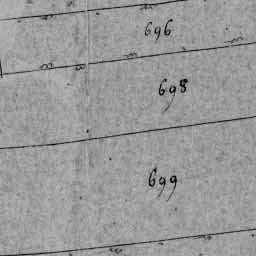 696
698
699